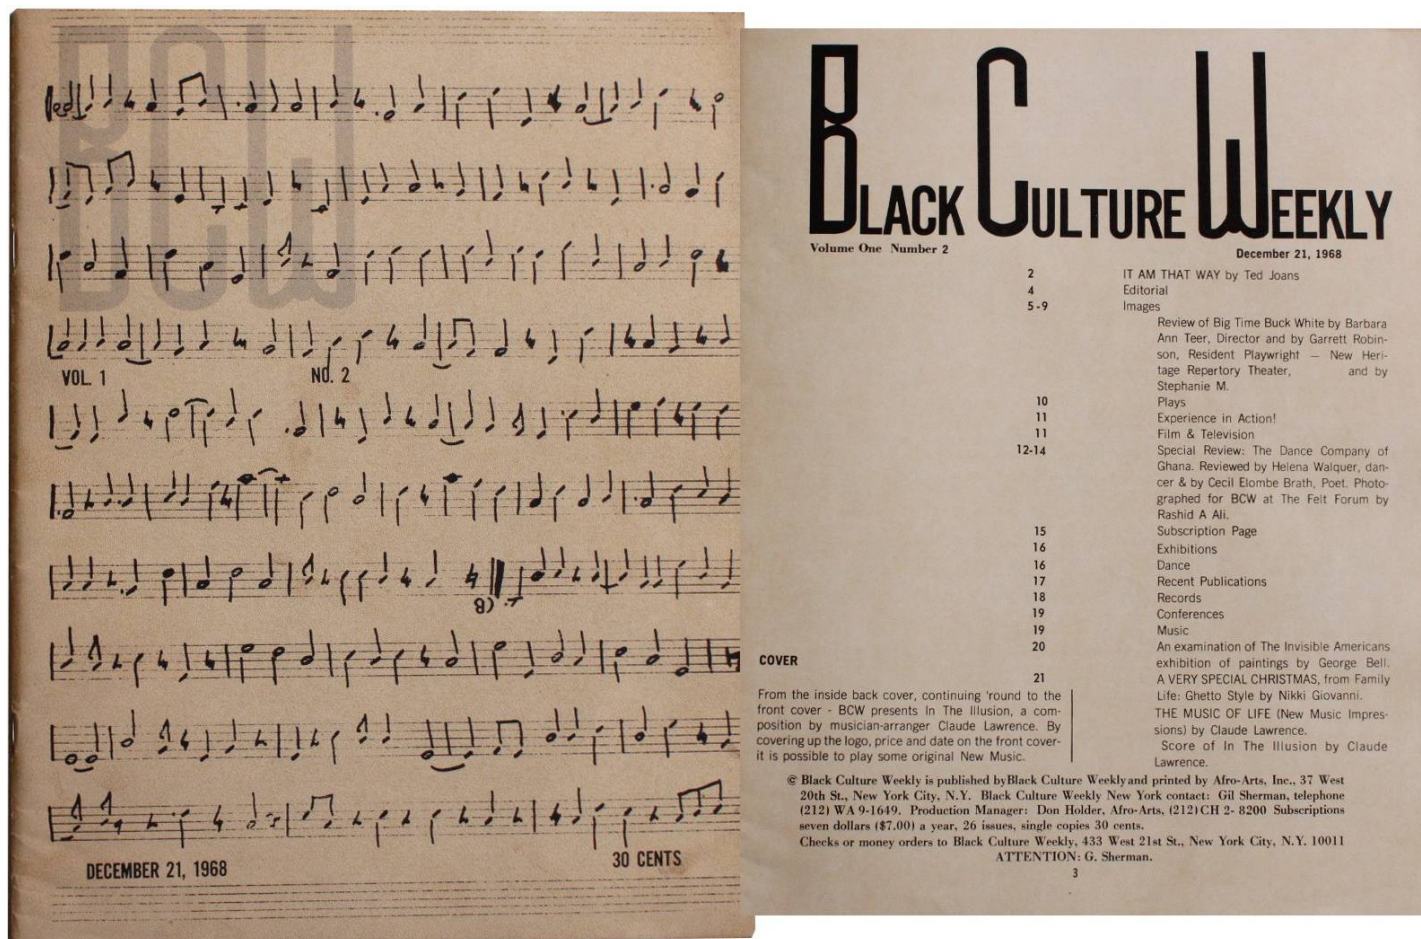 BCW
VOL. 1
NO. 2
8)
DECEMBER 21, 1968
30 CENTS
BLACK CULTURE WEEKLY
Volume One Number 2
December 21, 1968
2 IT AM THAT WAY by Ted Joans
4 Editorial
5-9 Images
Review of Big Time Buck White by Barbara
Ann Teer, Director and by Garrett Robin-
son, Resident Playwright — New Heri-
tage Repertory Theater, and by
Stephanie M.
10 Plays
11 Experience in Action!
11 Film & Television
12-14 Special Review: The Dance Company of
Ghana. Reviewed by Helena Walquer, dan-
cer & by Cecil Elombe Brath, Poet. Photo-
graphed for BCW at The Felt Forum by
Rashid A Ali.
15 Subscription Page
16 Exhibitions
16 Dance
17 Recent Publications
18 Records
19 Conferences
19 Music
20 An examination of The Invisible Americans
exhibition of paintings by George Bell.
21 A VERY SPECIAL CHRISTMAS, from Family
Life: Ghetto Style by Nikki Giovanni.
THE MUSIC OF LIFE (New Music Impres-
sions) by Claude Lawrence.
Score of In The Illusion by Claude
Lawrence.
COVER
From the inside back cover, continuing 'round to the
front cover - BCW presents In The Illusion, a com-
position by musician-arranger Claude Lawrence. By
covering up the logo, price and date on the front cover-
it is possible to play some original New Music.
© Black Culture Weekly is published by Black Culture Weekly and printed by Afro-Arts, Inc., 37 West
20th St., New York City, N.Y. Black Culture Weekly New York contact: Gil Sherman, telephone
(212) WA 9-1649. Production Manager: Don Holder, Afro-Arts, (212) CH 2- 8200 Subscriptions
seven dollars ($7.00) a year, 26 issues, single copies 30 cents.
Checks or money orders to Black Culture Weekly, 433 West 21st St., New York City, N.Y. 10011
ATTENTION: G. Sherman.
3